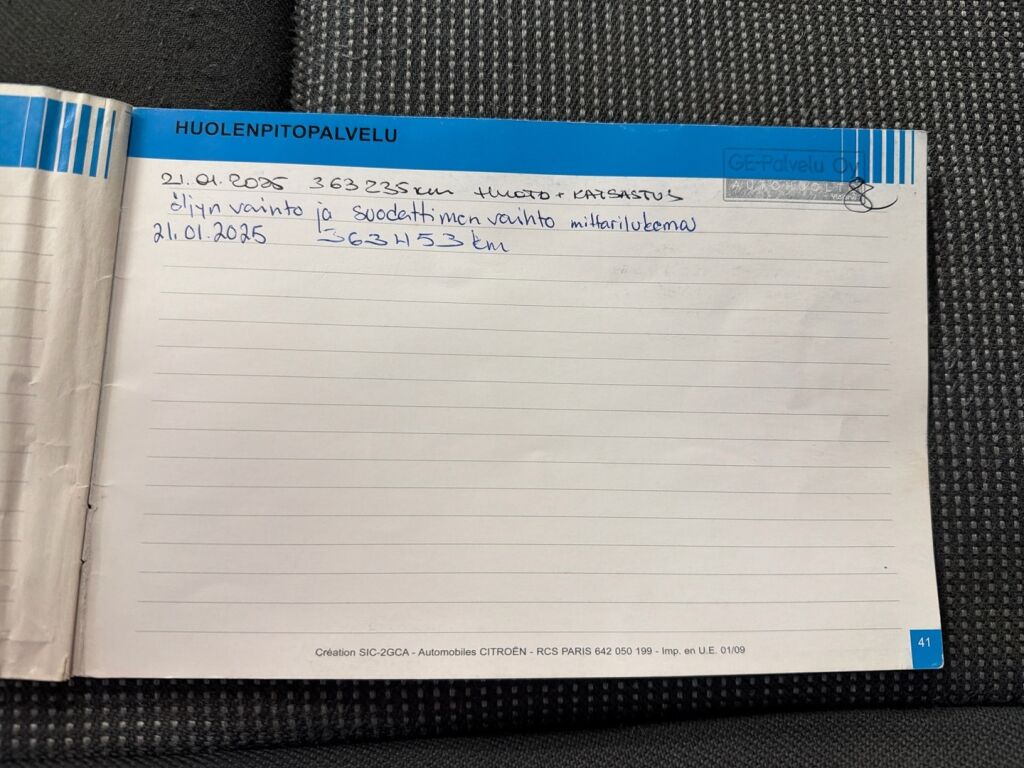 HUOLENPITOPALVELU
GE-Palvelu Oy
AUTOHUOLT
21.01.2025 363235km HUOTO + KATSASTUS
öljyn vainto ja suodattimen vaihto mittarilukema
21.01.2025 363453 km
Création SIC-2GCA - Automobiles CITROËN - RCS PARIS 642 050 199 - Imp. en U.E. 01/09
41